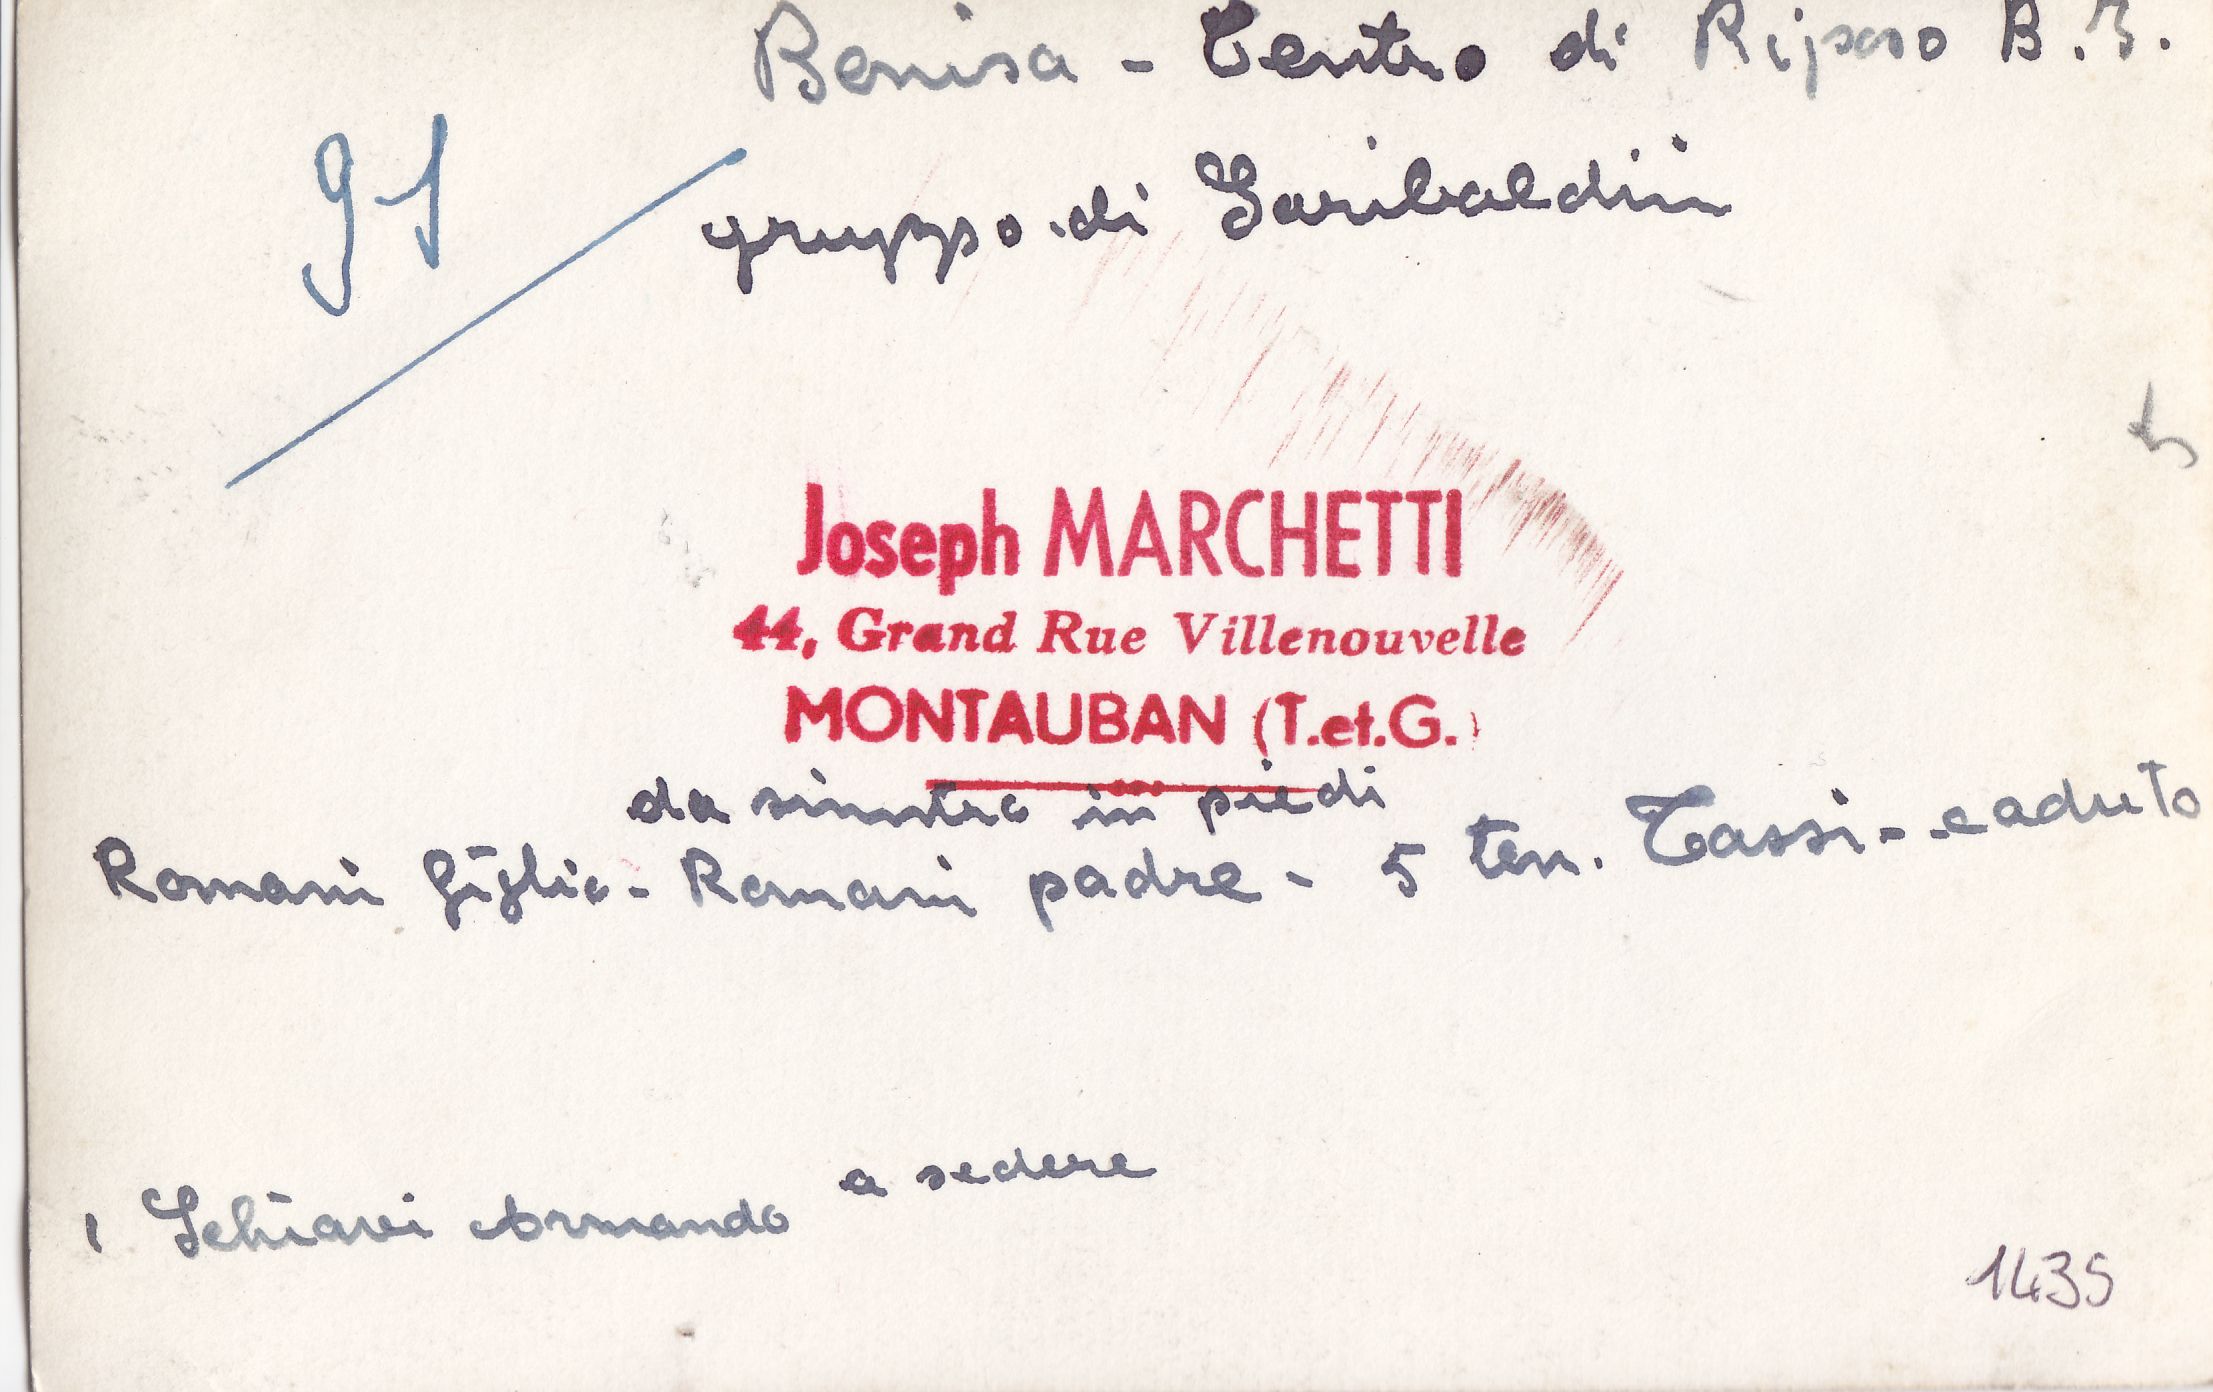 Benisa - Centro di Riposo B.I.
91
gruppo di Garibaldini
Joseph MARCHETTI
44, Grand Rue Villenouvelle
MONTAUBAN (T.et.G.)
da sinistra in piedi
Romani figlio - Romani padre - 5 ten. Tassi - caduto
a sedere
1 Schiavi Armando
1435